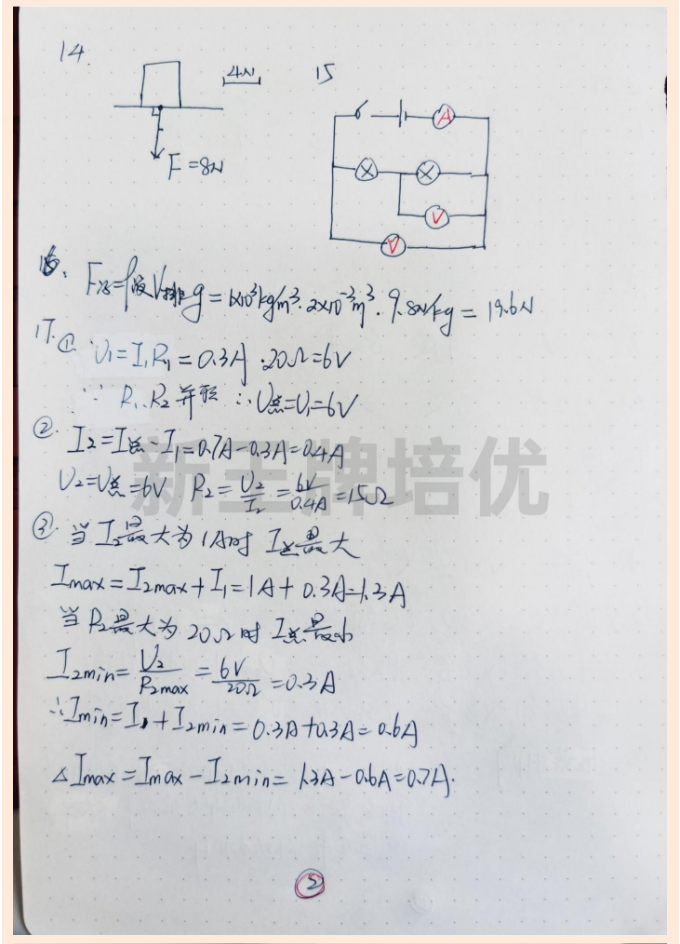 14.
4N
F=8N
15
A
V
V
16. F浮=ρ液V排g=1×10³kg/m³·2×10⁻³m³·9.8N/kg=19.6N
17.① U₁=I₁R₁=0.3A·20Ω=6V
∵ R₁、R₂并联 ∴U总=U₁=6V
②. I₂=I总-I₁=0.7A-0.3A=0.4A
U₂=U总=6V R₂=U₂/I₂=6V/0.4A=15Ω
③. 当I₂最大为1A时 I总最大
Imax=I₂max+I₁=1A+0.3A=1.3A
当R₂最大为20Ω时 I总最小
I₂min=U₂/R₂max=6V/20Ω=0.3A
∴Imin=I₁+I₂min=0.3A+0.3A=0.6A
ΔImax=Imax-I₂min=1.3A-0.6A=0.7A.
新王牌培优
2